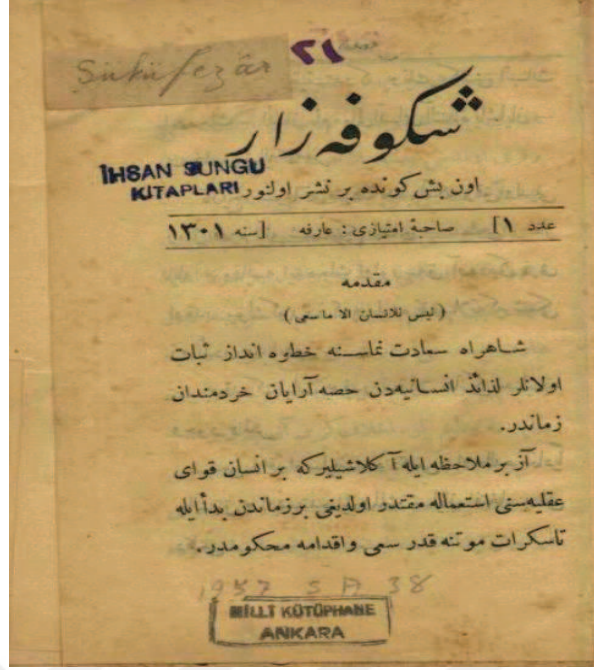 ٢١
Şükûfezâr
شكوفه زار
İHSAN SUNGU
KİTAPLARI
اون بش كونده بر نشر اولنور
عدد ١] صاحبهٔ امتيازى : عارفه [سنه ١٣٠١
مقدمه
(ليس للانسان الا ماسعى)
شاهراه سعادت نماسنه خطوه انداز ثبات
اولانلر لذائذ انسانيه‌دن حصه آرايان خردمندان
زماندر.
آز بر ملاحظه ايله آكلاشيلير كه بر انسان قواى
عقليه‌سنى استعماله مقتدر اولديغى بر زماندن بدأ ايله
تاسكرات موتنه قدر سعى و اقدامه محكومدر.
1957 S A 38
MİLLÎ KÜTÜPHANE
ANKARA